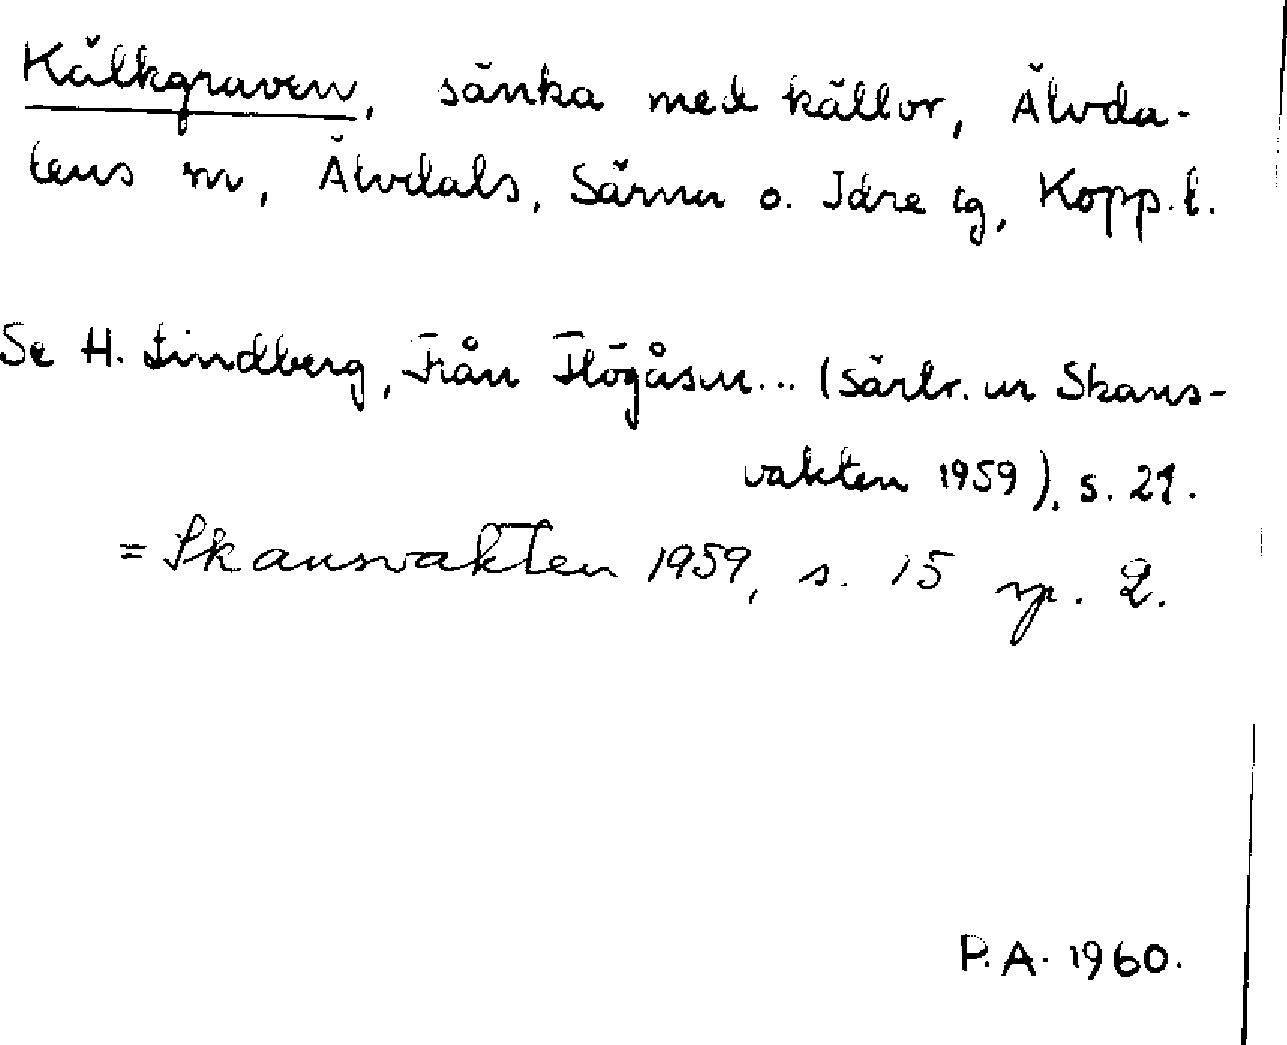 Källkgraven, sänka med källor, Älvda-
lens sn, Älvdals, Särna o. Idre tg, Kopp. l.
Se H. Lindberg, Från Flögåsen... (särtr. ur Skans-
vakten 1959), s. 21.
= Skansvakten 1959, s. 15 sp. 2.
P.A. 1960.